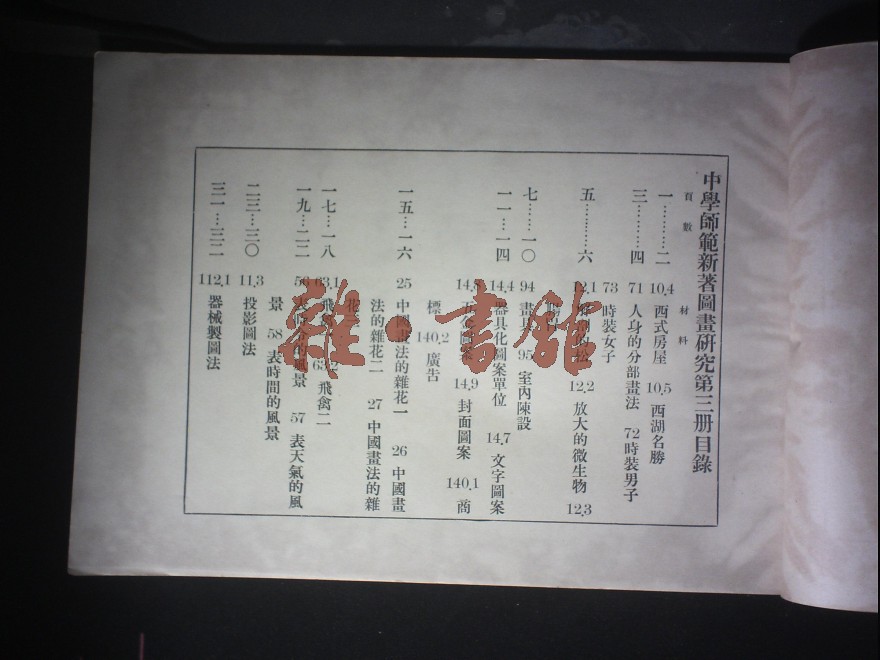 中學師範新著圖畫研究第三册目錄
頁數 材料
一………二 10,4 西式房屋 10,5 西湖名勝
三………四 71 人身的分部畫法 72 時裝男子
73 時裝女子
五………六 12,1 的松 12,2 放大的微生物 12,3
七……一〇 94 畫 95 室內陳設
一一…一四 14,4 器具化圖案單位 14,7 文字圖案
圖案 14,9 封面圖案 140,1 商
標 140,2 廣告
一五…一六 25 中國畫法的雜花一 26 中國畫
法的雜花二 27 中國畫法的雜
花
一七…一八 63,1 飛禽 63,2 飛禽二
一九…二二 56 表時令的風景 57 表天氣的風
景 58 表時間的風景
二三…三〇 11,3 投影圖法
三一…三二 112,1 器械製圖法
雜·書館